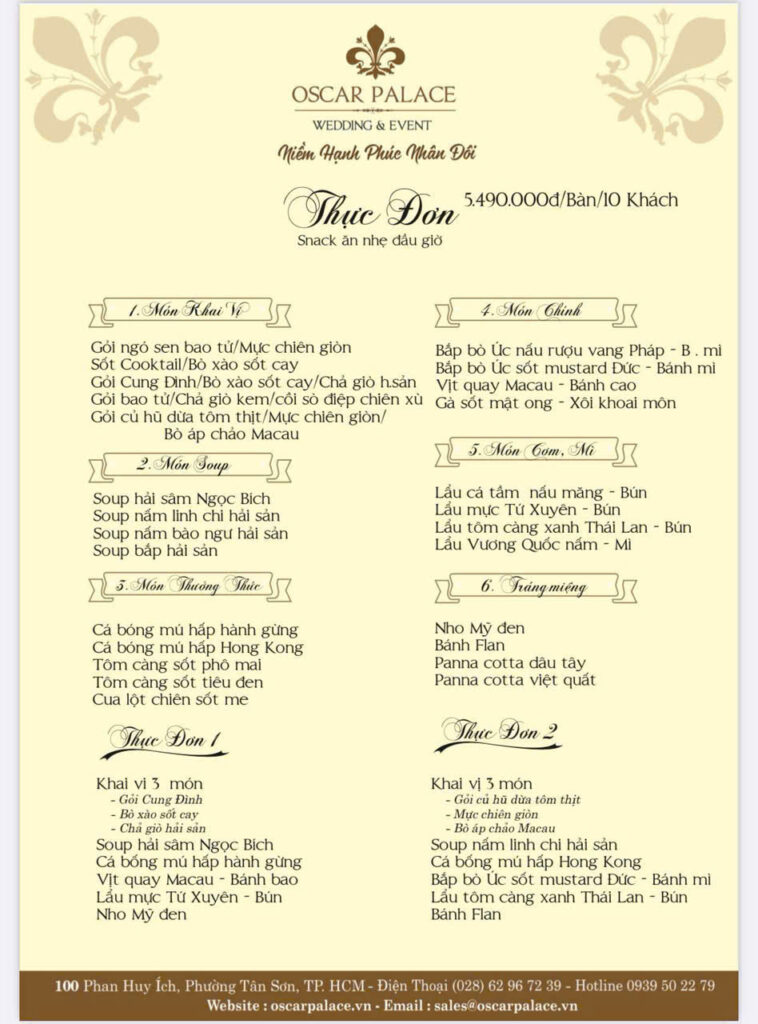 OSCAR PALACE
WEDDING & EVENT
Niềm Hạnh Phúc Nhân Đôi
Thực Đơn 5.490.000đ/Bàn/10 Khách
Snack ăn nhẹ đầu giờ
1. Món Khai Vị
Gỏi ngó sen bao tử/Mực chiên giòn
Sốt Cooktail/Bò xào sốt cay
Gỏi Cung Đình/Bò xào sốt cay/Chả giò h.sản
Gỏi bao tử/Chả giò kem/cồi sò điệp chiên xù
Gỏi củ hũ dừa tôm thịt/Mực chiên giòn/
Bò áp chảo Macau
2. Món Soup
Soup hải sâm Ngọc Bích
Soup nấm linh chi hải sản
Soup nấm bào ngư hải sản
Soup bắp hải sản
3. Món Thưởng Thức
Cá bóng mú hấp hành gừng
Cá bóng mú hấp Hong Kong
Tôm càng sốt phô mai
Tôm càng sốt tiêu đen
Cua lột chiên sốt me
4. Món Chính
Bắp bò Úc nấu rượu vang Pháp - B . mì
Bắp bò Úc sốt mustard Đức - Bánh mì
Vịt quay Macau - Bánh cao
Gà sốt mật ong - Xôi khoai môn
5. Món Cơm, Mì
Lẩu cá tầm nấu măng - Bún
Lẩu mực Tứ Xuyên - Bún
Lẩu tôm càng xanh Thái Lan - Bún
Lẩu Vương Quốc nấm - Mi
6. Tráng miệng
Nho Mỹ đen
Bánh Flan
Panna cotta dâu tây
Panna cotta việt quất
Thực Đơn 1
Khai vi 3 món
- Gỏi Cung Đình
- Bò xào sốt cay
- Chả giò hải sản
Soup hải sâm Ngọc Bích
Cá bống mú hấp hành gừng
Vịt quay Macau - Bánh bao
Lẩu mực Tứ Xuyên - Bún
Nho Mỹ đen
Thực Đơn 2
Khai vị 3 món
- Gỏi củ hũ dừa tôm thịt
- Mực chiên giòn
- Bò áp chảo Macau
Soup nấm linh chi hải sản
Cá bống mú hấp Hong Kong
Bắp bò Úc sốt mustard Đức - Bánh mì
Lẩu tôm càng xanh Thái Lan - Bún
Bánh Flan
100 Phan Huy Ích, Phường Tân Sơn, TP. HCM - Điện Thoại (028) 62 96 72 39 - Hotline 0939 50 22 79
Website : oscarpalace.vn - Email : sales@oscarpalace.vn